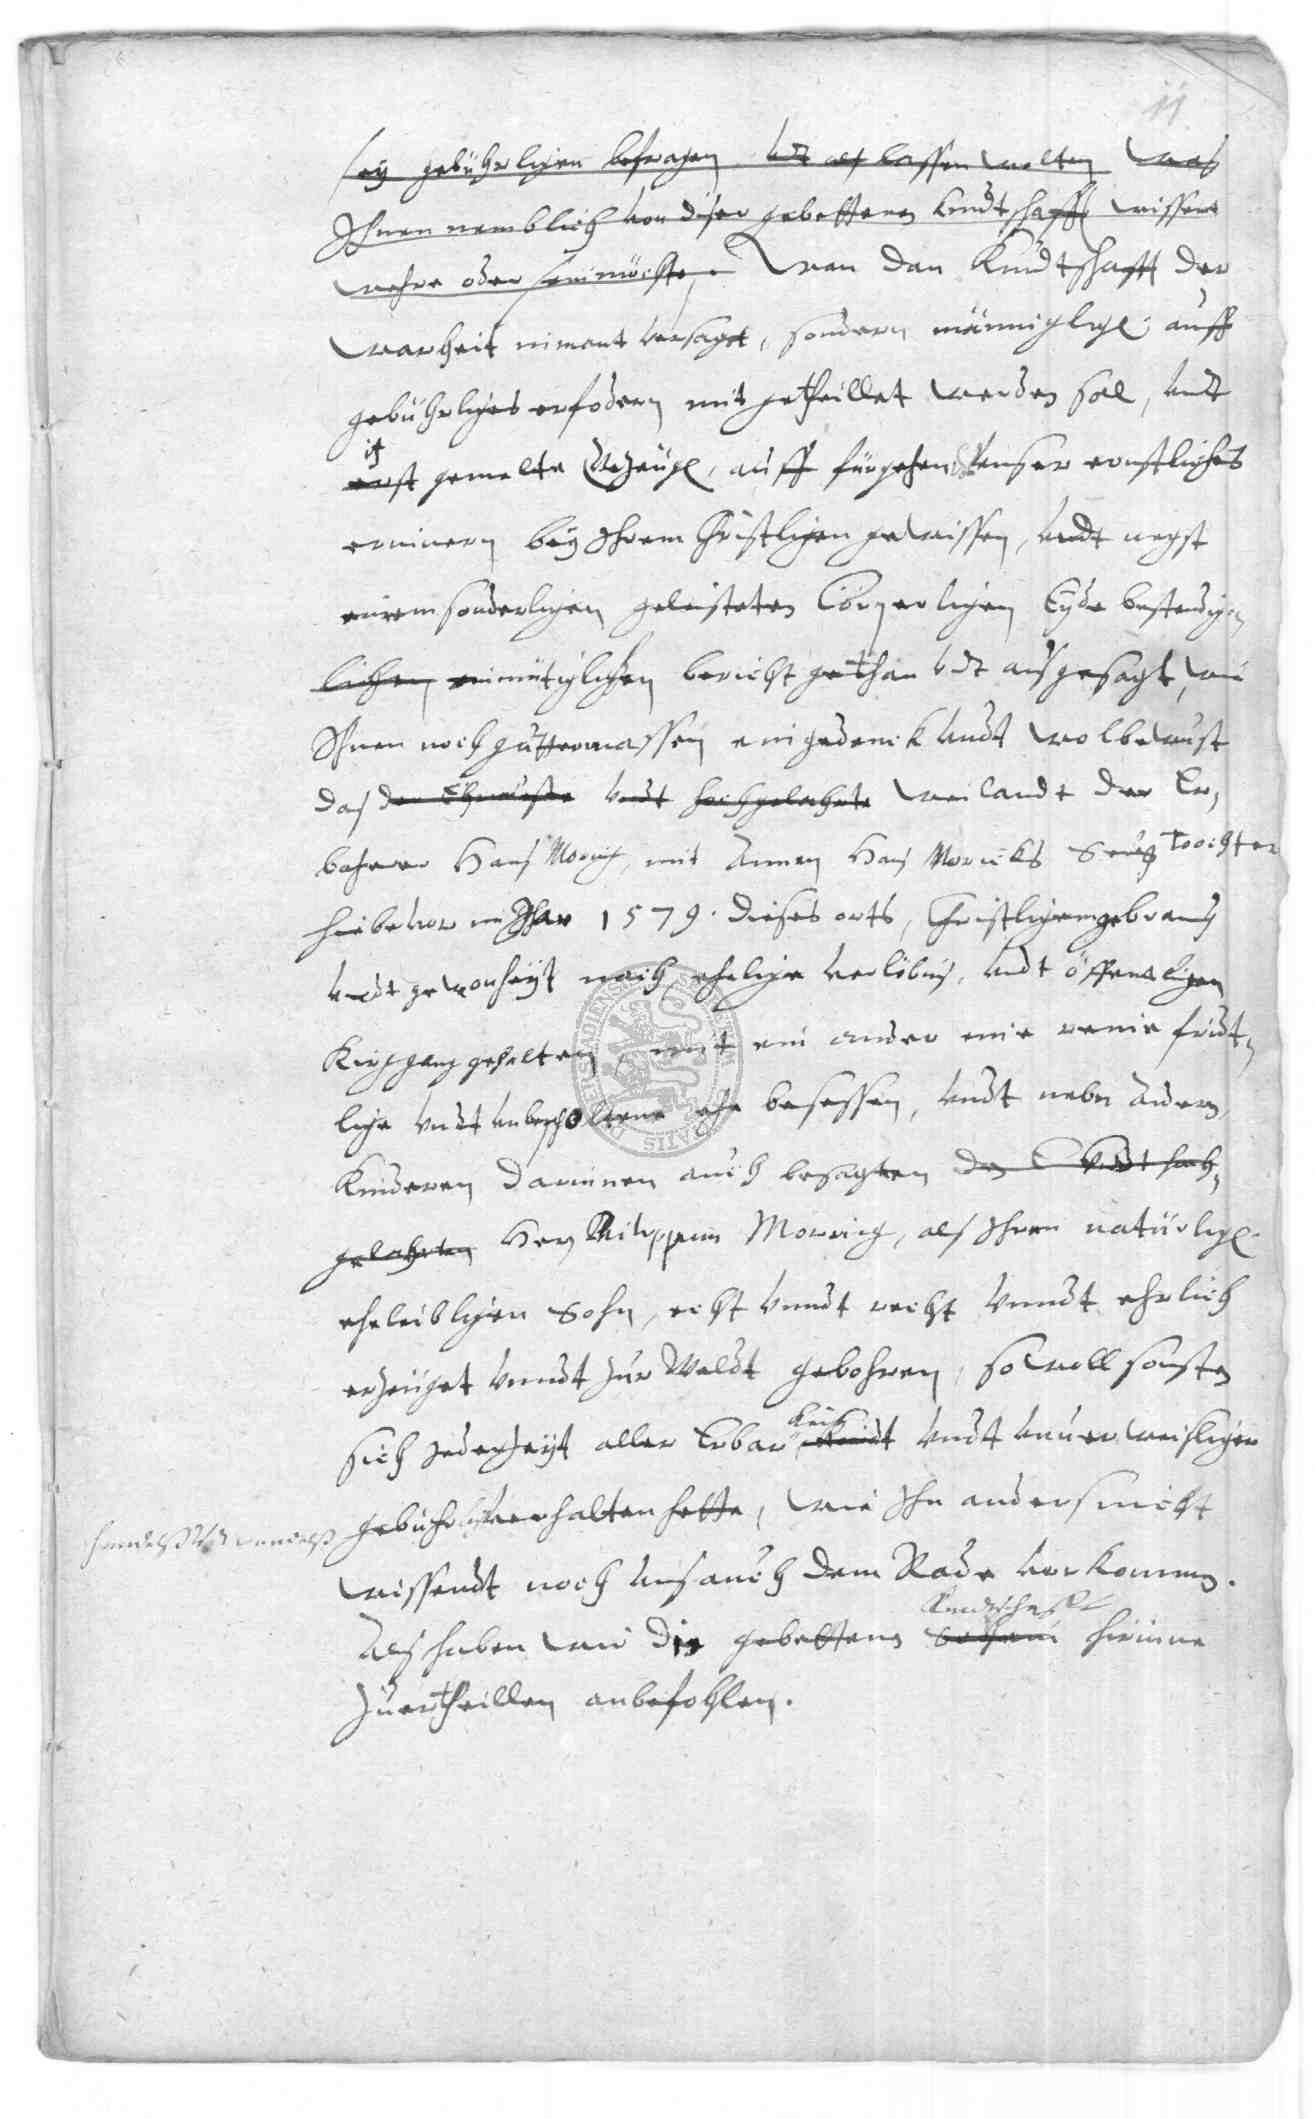 11
sey gebührlichen befragen vndt als lassen wolten was
Ihnen nemblich von diser gebettenen kundtschafft wissens
wehre oder sein möchte. Wan dan Kundtschafft der
warheit nimant versaget, sondern männiglich auff
gebührliches erfodern mit getheillet werden sol, vndt
itz
erst gemelte Gezeuge, auff fürgehend vnser ernstliches
erinnern bey Ihrem Christlichen gewissen, vndt negst
einem sonderlichen geleisteten Cörperlichen Eyde bestendig
lichen einmütiglichen bericht gethan vndt ausgesagt, wie
Ihnen noch guttermassen eingedenck vndt wolbewust
das der Ehrnueste vndt hochgelahrte weilandt der Er,
bahrer Hans Moring, mit Annen Hans Moricks Tochter
hiebeuor im Jhar 1579. dieses orts, Christlichem gebrauch
vndt gewonheyt nach, eheliche verlöbnis, vndt öffentlichen
Kirchgang gehalten, mit ein ander eine reine fridt,
liche vndt vnbescholtene ehe besessen, vndt neben andern
Kinderen darinnen auch besagten den vndt hoch,
gelahrten Hern Philippum Morring, als Ihren natürlich
eheleiblichen Sohn, echt vnndt recht vnndt ehrlich
erzeuget vnndt zur Weldt gebohren, so woll sonsten
keit
sich jederzeyt aller Erbar vndt vnuerweislichen
handelß vnd wandelß gebühr verhalten hette, wie Ihn anders nicht
wissendt noch vns auch dem Rade vorkommen.
Kundtschafft
Als haben wir die gebettene hirinne
zuertheillen anbefohlen.